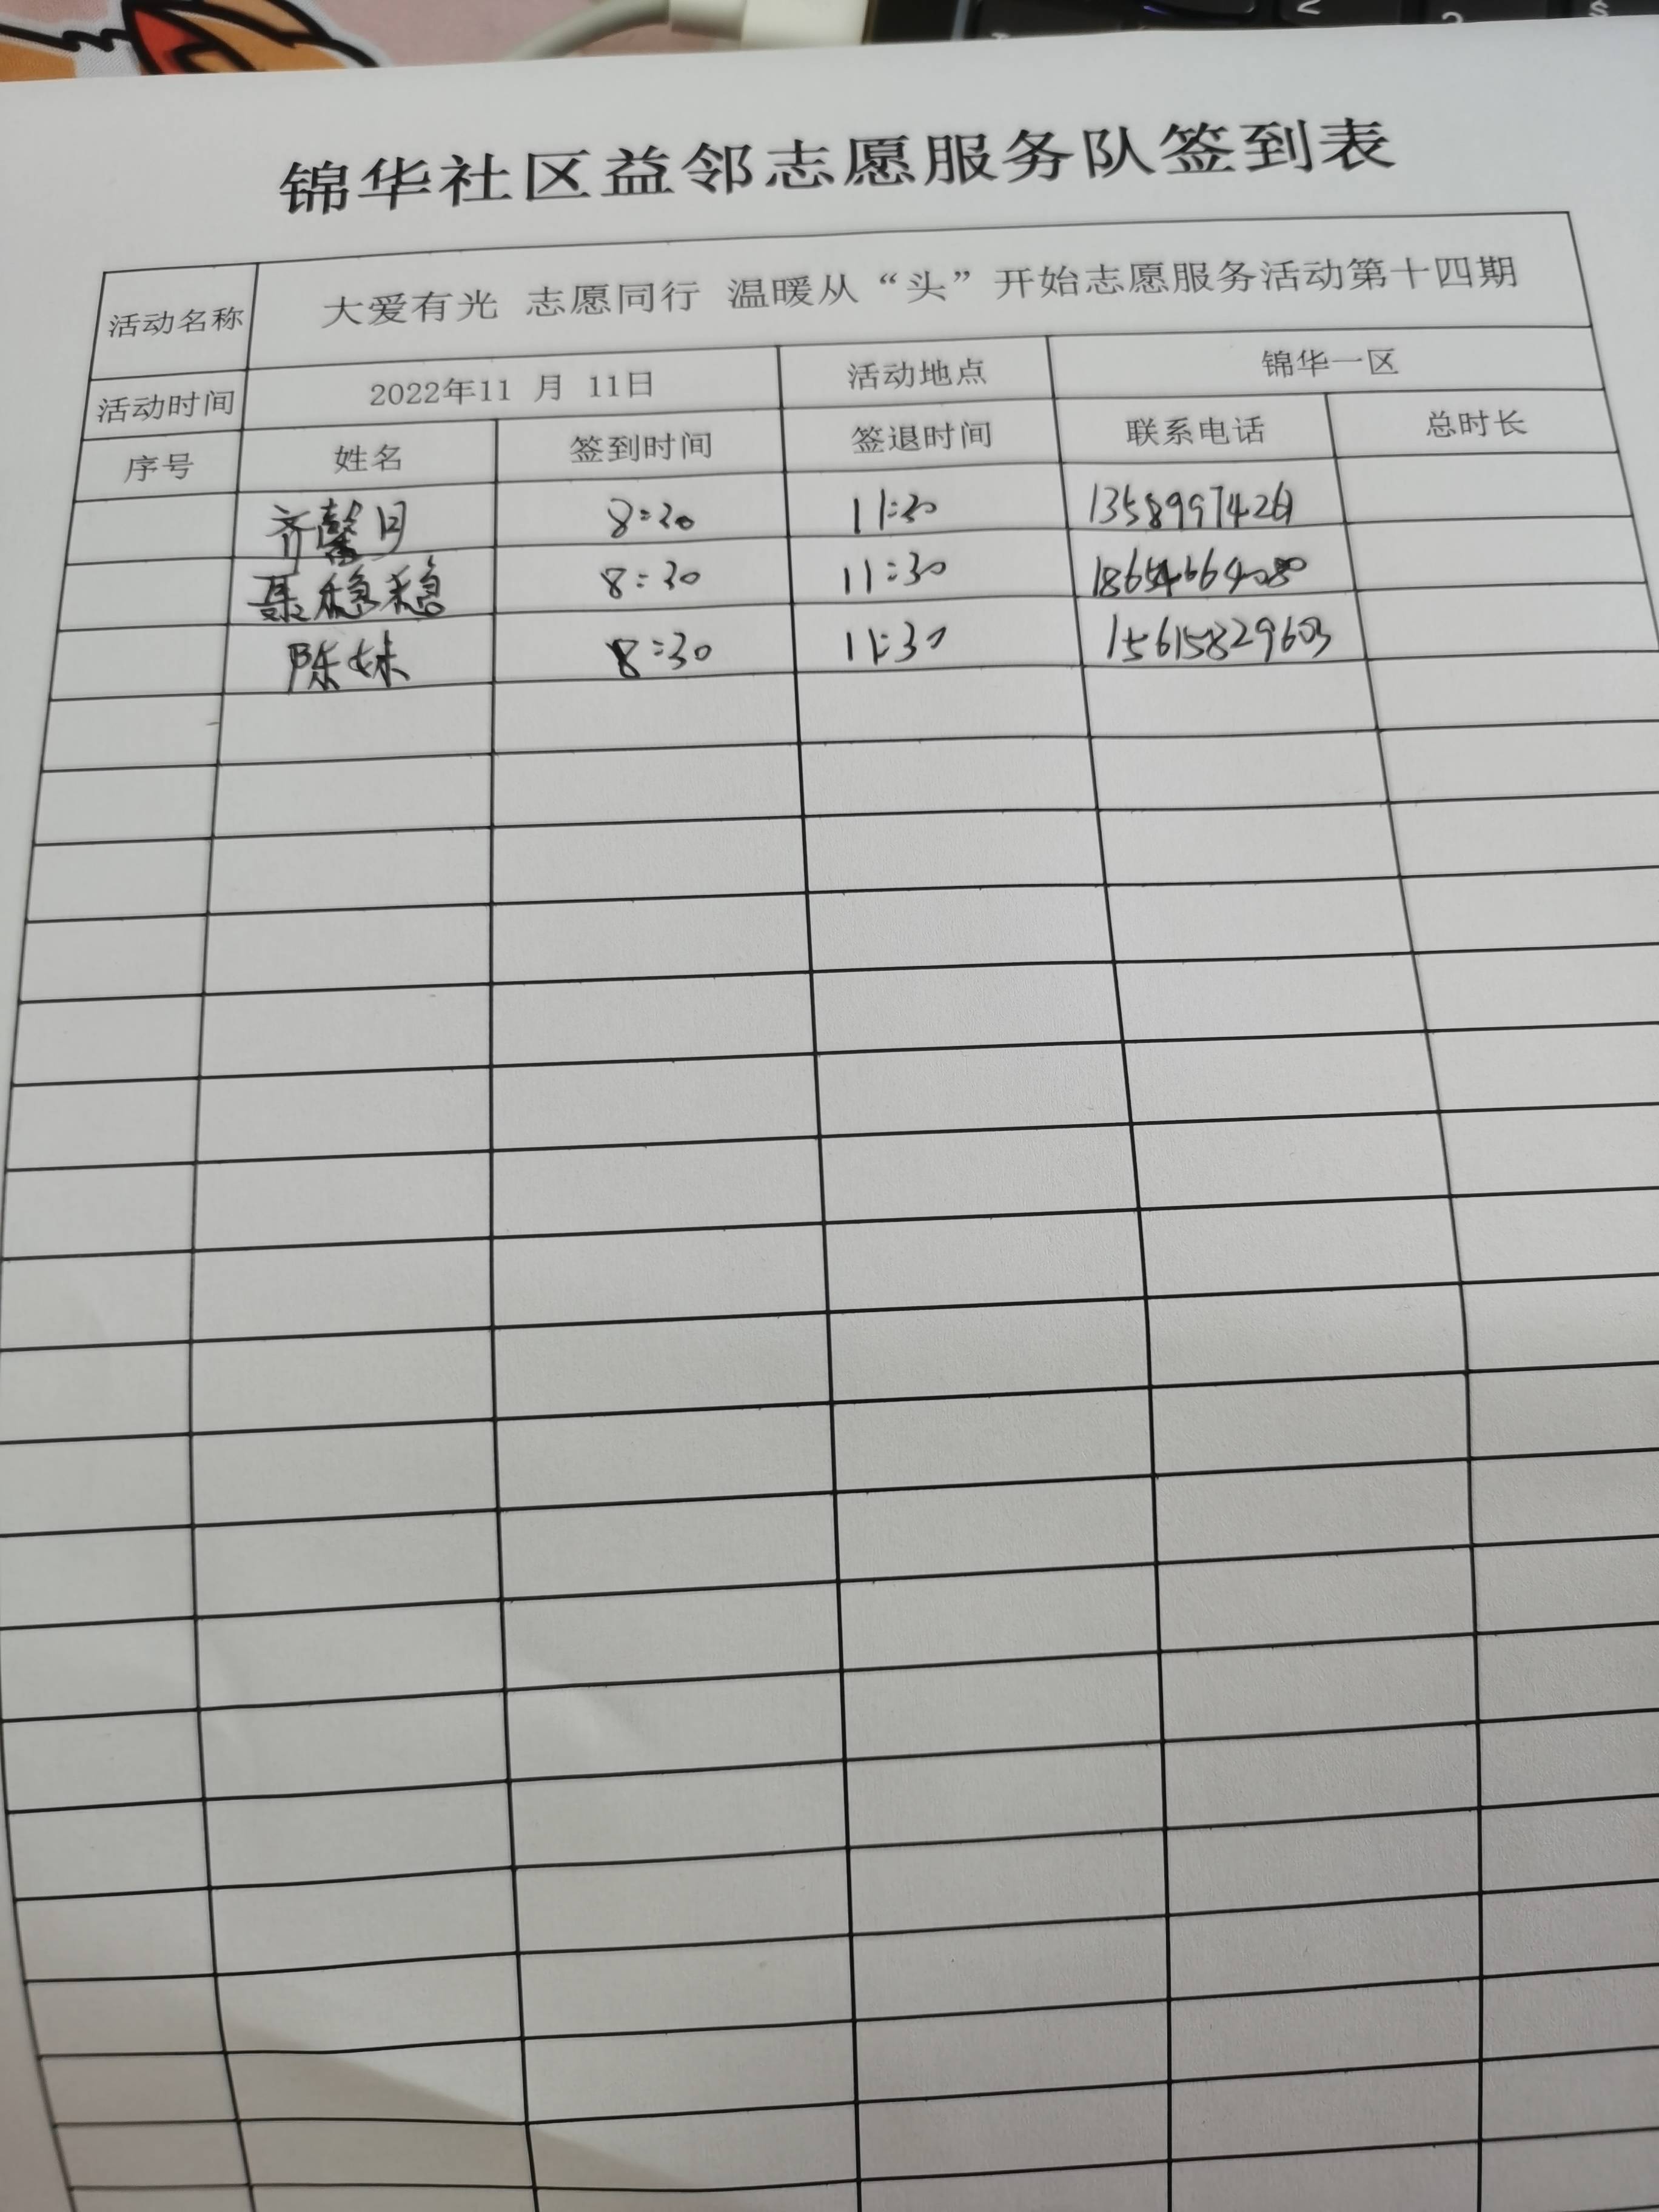 锦华社区益邻志愿服务队签到表
活动名称 大爱有光 志愿同行 温暖从“头”开始志愿服务活动第十四期
活动时间 2022年11 月 11日 活动地点 锦华一区
序号 姓名 签到时间 签退时间 联系电话 总时长
齐馨月 8:30 11:30 13589974261
聂稳稳 8:30 11:30
陈妹 8:30 11:30 15615829603